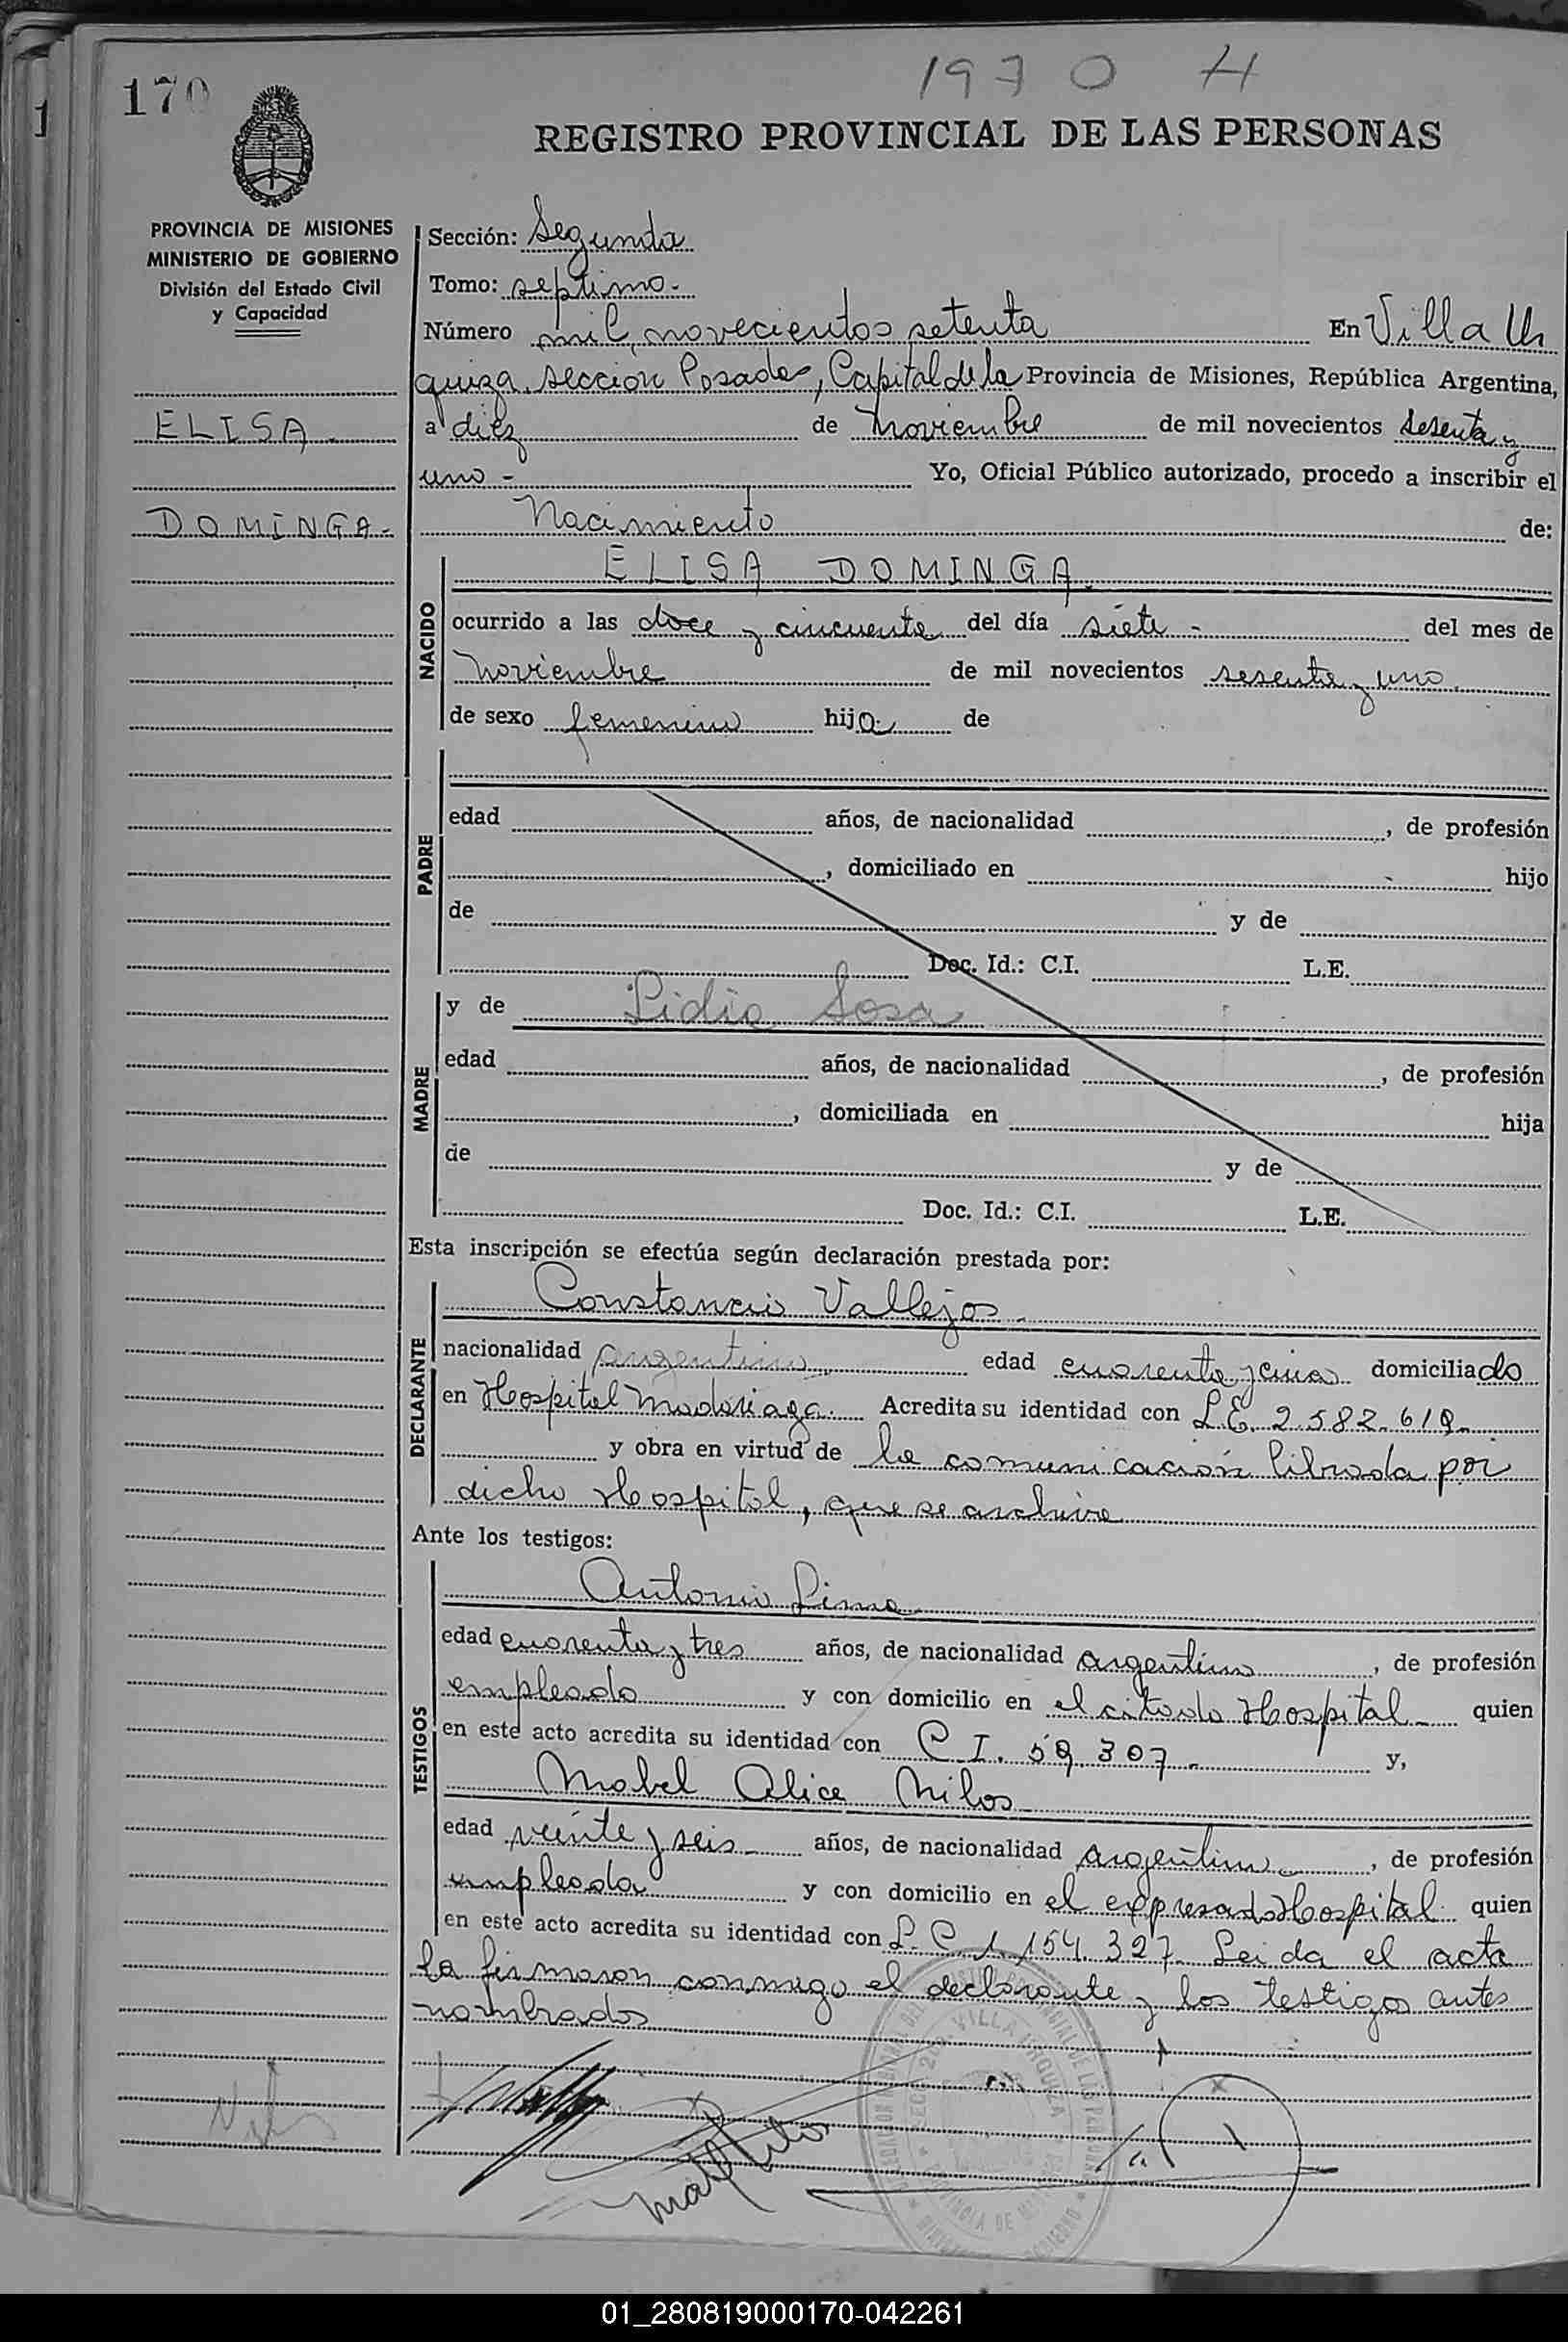 1970 H
170
REGISTRO PROVINCIAL DE LAS PERSONAS
PROVINCIA DE MISIONES
MINISTERIO DE GOBIERNO
División del Estado Civil
y Capacidad
ELISA
DOMINGA.-
Sección: Segunda
Tomo: septimo.-
Número mil novecientos setenta En Villa Ur
quiza, sección Posadas, Capital de la Provincia de Misiones, República Argentina,
a diez de noviembre de mil novecientos sesenta y
uno - Yo, Oficial Público autorizado, procedo a inscribir el
Nacimiento de:
NACIDO
ELISA DOMINGA.
ocurrido a las doce y cincuenta del día siete - del mes de
noviembre de mil novecientos sesenta y uno
de sexo femenino hija de
PADRE
edad años, de nacionalidad , de profesión
, domiciliado en hijo
de y de
Doc. Id.: C.I. L.E.
MADRE
y de Lidia Sosa
edad años, de nacionalidad , de profesión
, domiciliada en hija
de y de
Doc. Id.: C.I. L.E.
Esta inscripción se efectúa según declaración prestada por:
DECLARANTE
Constancio Vallejos.
nacionalidad argentino edad cuarenta y domiciliado
en Hospital Madariaga. Acredita su identidad con L.E. 2.582.619.
y obra en virtud de la comunicación librada por
dicho Hospital, que se archiva
Ante los testigos:
TESTIGOS
Antonio Lima
edad cuarenta y tres años, de nacionalidad argentino , de profesión
empleado y con domicilio en el citado Hospital quien
en este acto acredita su identidad con C.I. 59.307.- y,
Mabel Alice Milos
edad veinte y seis años, de nacionalidad argentina , de profesión
empleada y con domicilio en el expresado Hospital quien
en este acto acredita su identidad con L.C. 1.154.327. Leida el acta
la firmaron conmigo el declarante y los testigos antes
nombrados
01_280819000170-042261